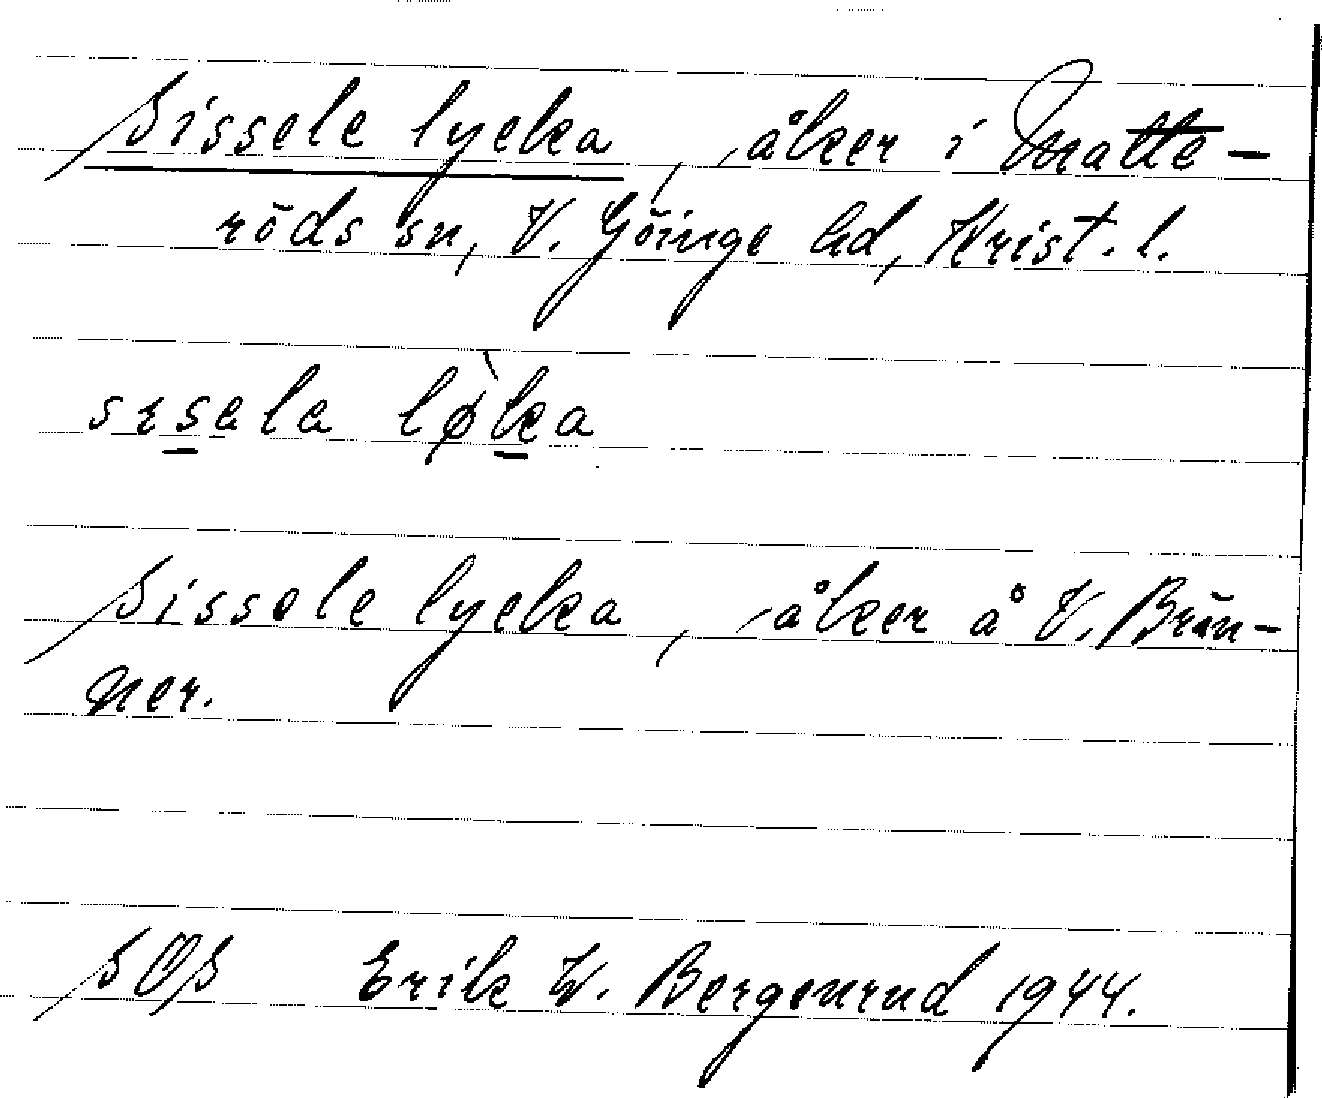 Sissele lycka, åker i Matte-
röds sn, V. Göinge hd, Krist. l.
sɪsala lø̀ka
Sissele lycka, åker å V. Brön-
ner.
SOS Erik W. Bergenrud 1944.